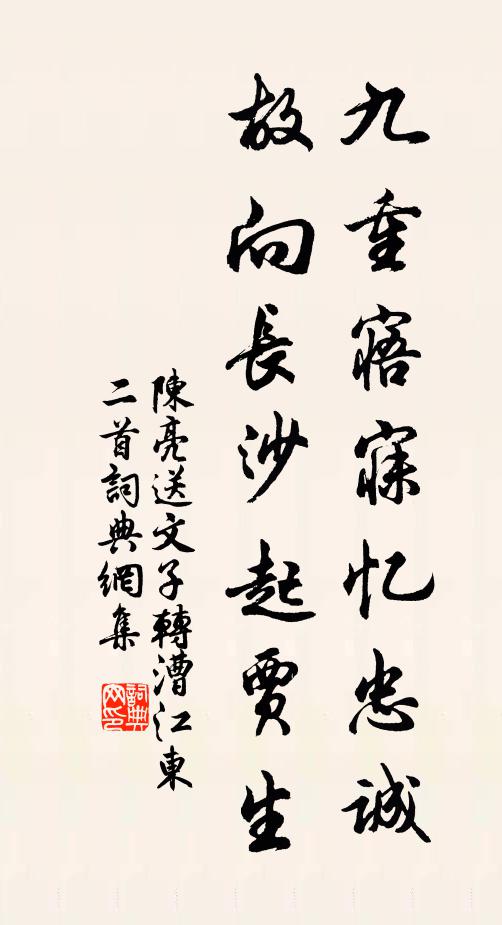 九重寤寐忆忠誠
故向長沙起賈生
陳亮送文子轉漕江東
二首詞典網集
詞典网印